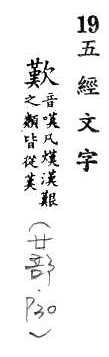 19 五經文字
歎
音嘆凡熯漢艱
之類皆從𦰩
(廿部·P30)